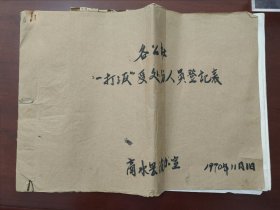 各公社
"一打三反"受处分人员登记表
商水县 办室 1970年11月1日